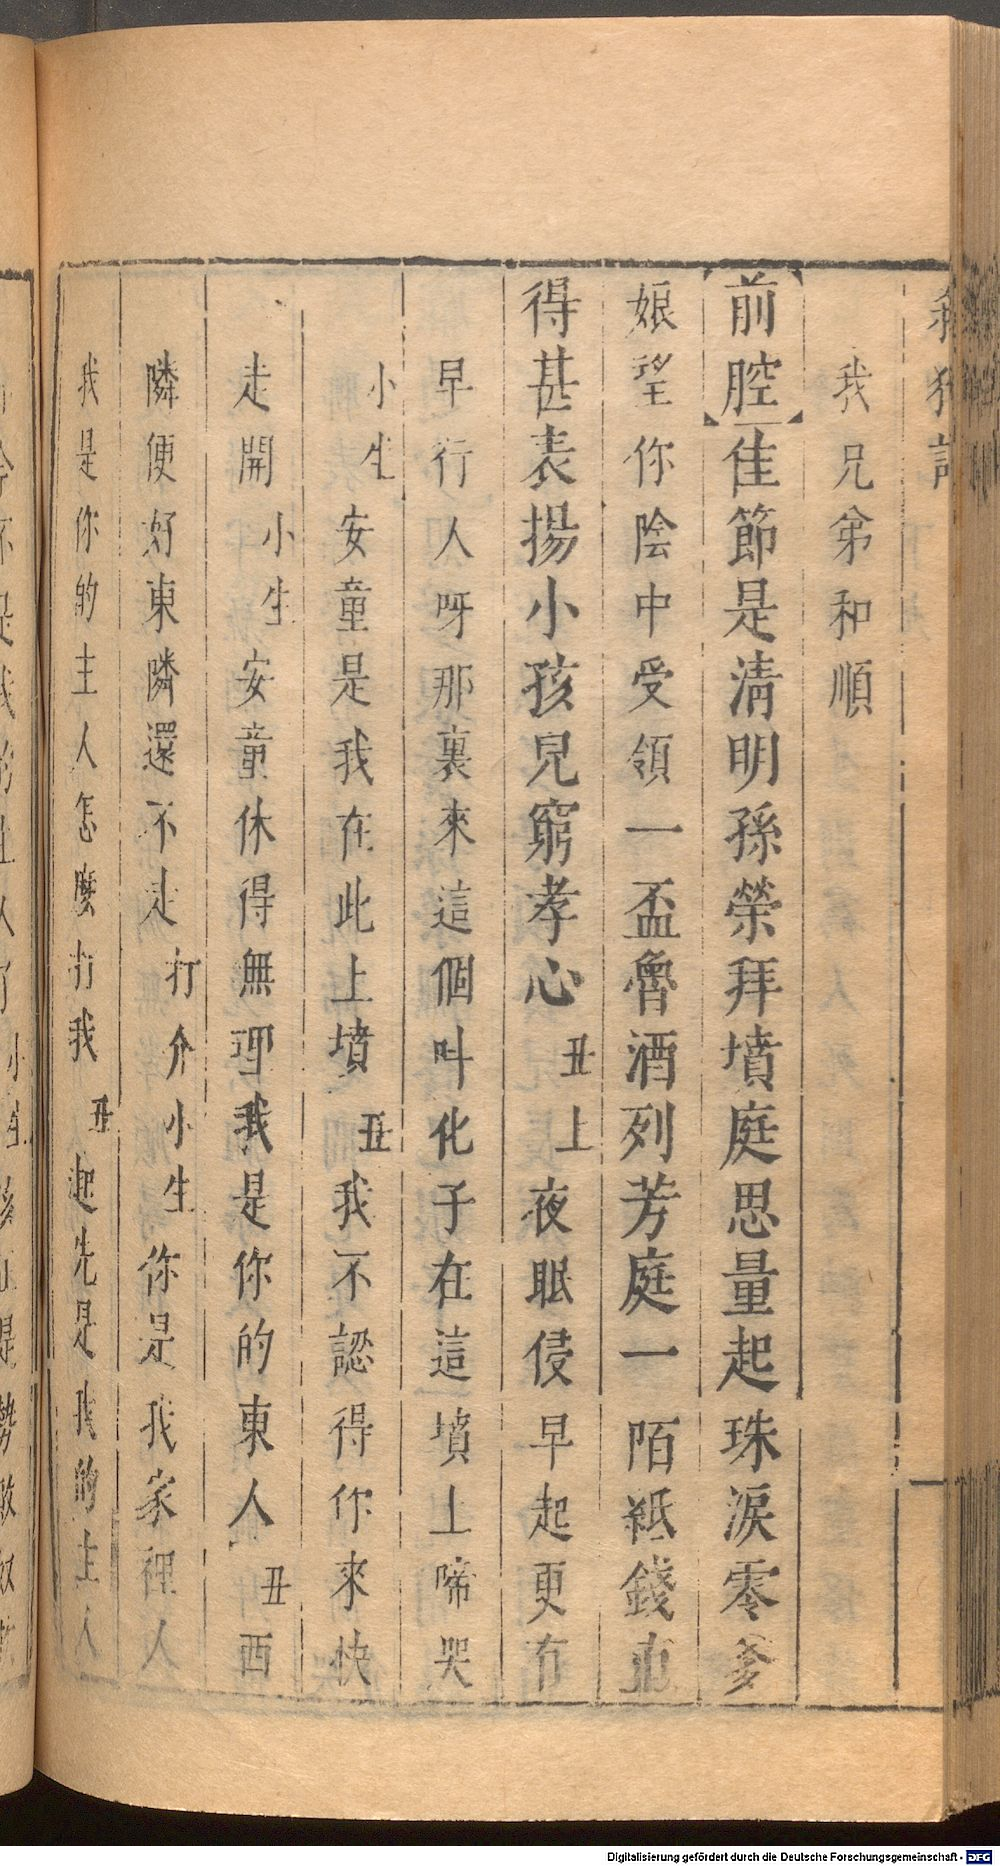 殺狗記
我兄弟和順
【前腔】佳節是清明孫榮拜墳庭思量起珠淚零爹
娘望你陰中受領一盃魯酒列芳庭一陌紙錢也
得甚表揚小孩兒窮孝心 丑上 夜眠侵早起更有
早行人呀那裏來這個叫化子在這墳上啼哭
小生 安童是我在此上墳 丑 我不認得你來快
走開 小生 安童休得無理我是你的東人 丑 西
隣便好東隣還不走 打介 小生 你是我家裡人
我是你的主人怎麼打我 丑 起先是我的主人
Digitalisierung gefördert durch die Deutsche Forschungsgemeinschaft - DFG